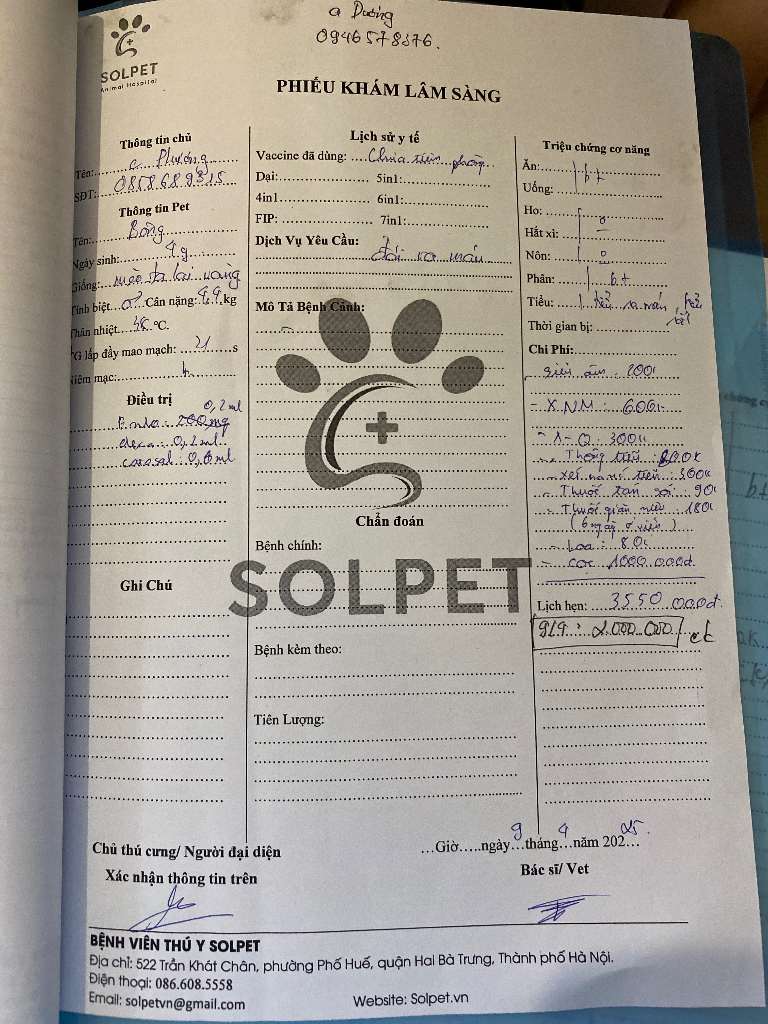 a Dương
0946578376.
SOLPET
Animal Hospital
PHIẾU KHÁM LÂM SÀNG
Thông tin chủ
Tên: c. Phương
SĐT: 0858689815
Thông tin Pet
Tên: Bông
Ngày sinh: 4g
Giống: mèo ta lai vàng
Tính biệt ♂ Cân nặng: 4,9 kg
Thân nhiệt 38 °C.
TG lấp đầy mao mạch: 21 s
Niêm mạc: h
Điều trị
0,2 ml
200mg
dexa: 0,2ml
0,8ml
Ghi Chú
Lịch sử y tế
Vaccine đã dùng: Chưa tiêm phòng
Dại: 5in1:
4in1 6in1:
FIP: 7in1:
Dịch Vụ Yêu Cầu:
đái ra máu
Mô Tả Bệnh Cảnh:
SOLPET
Chẩn đoán
Bệnh chính:
Bệnh kèm theo:
Tiên Lượng:
Triệu chứng cơ năng
Ăn: bt
Uống:
Ho: 0
Hắt xì: –
Nôn: 0
Phân: bt
Tiểu: tiểu ra máu, tiểu
Thời gian bị:
Chi Phí:
siêu âm: 200k
- XNM: 600k
- X-Q: 300k
- Thông tiểu: 800k
- xét nghiệm tiểu: 300k
- Thuốc tan sỏi: 90k
- Thuốc giãn niệu 180k
(6 ngày ở viện)
- Loa: 80k
- cọc 1000.000đ
Lịch hẹn: 3550.000đ
9/4: 2.000.000 ck
Chủ thú cưng/ Người đại diện
Xác nhận thông tin trên
...Giờ.....ngày 9 tháng 4 năm 2025.
Bác sĩ/ Vet
BỆNH VIỆN THÚ Y SOLPET
Địa chỉ: 522 Trần Khát Chân, phường Phố Huế, quận Hai Bà Trưng, Thành phố Hà Nội.
Điện thoại: 086.608.5558
Email: solpetvn@gmail.com Website: Solpet.vn